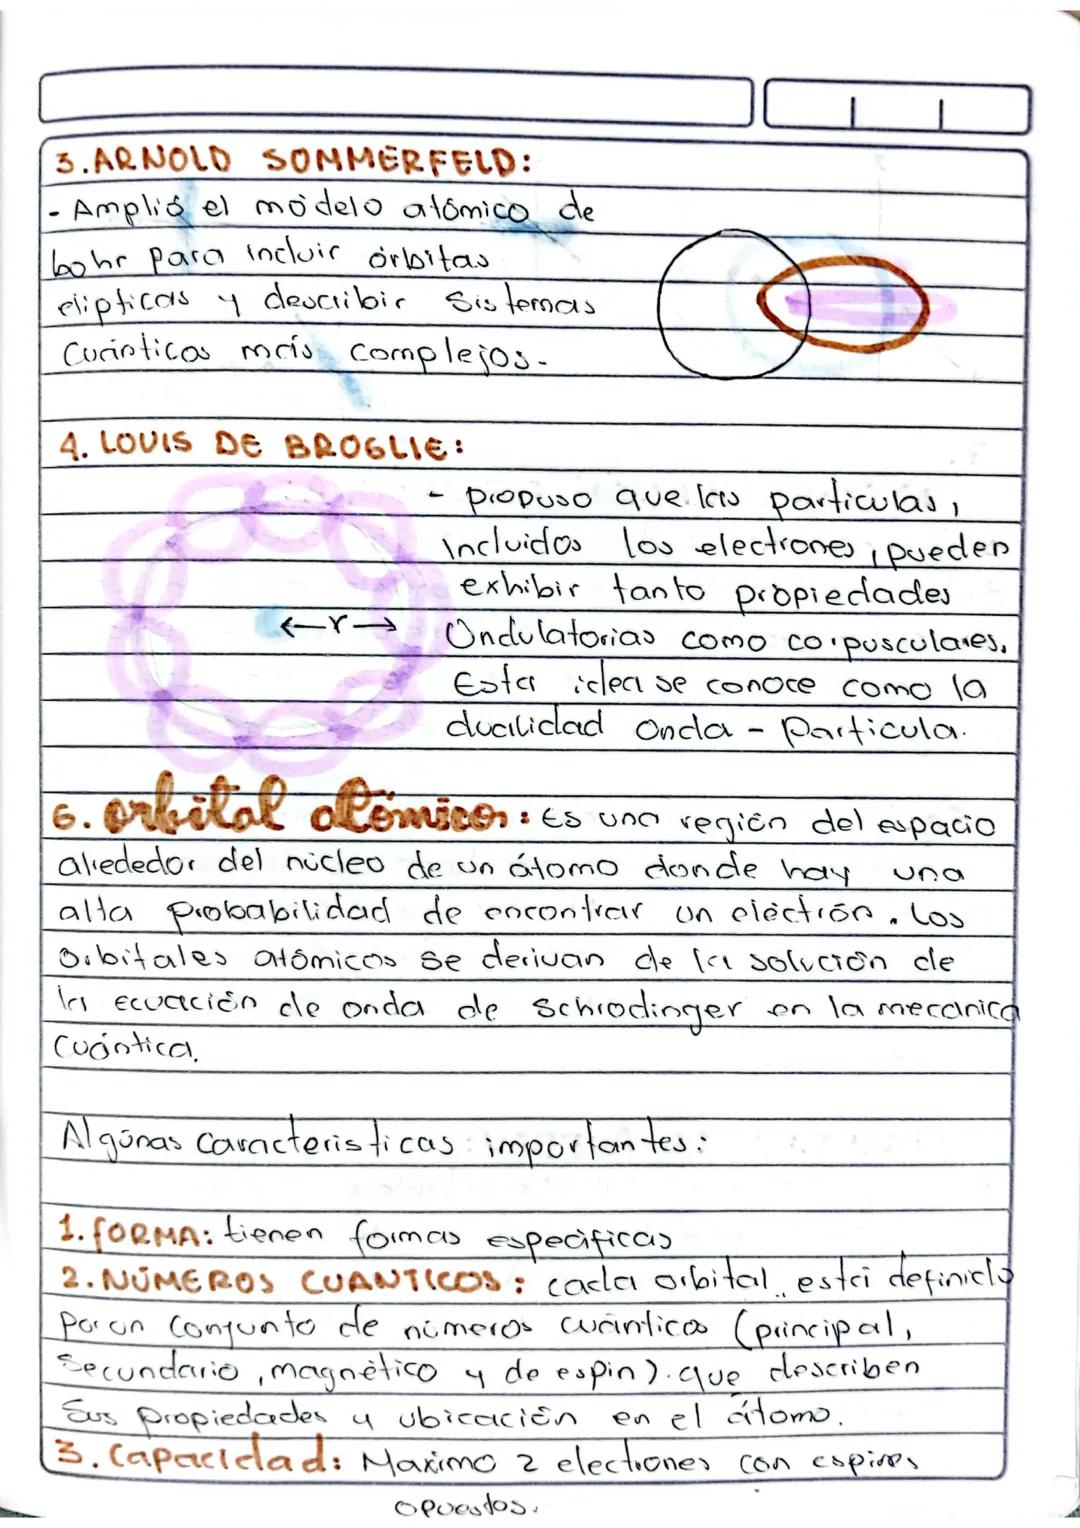 3. ARNOLD SOMMERFELD:
- Amplió el modelo atómico de
bohr para incluir órbitas
elipticas y describir Sistemas
Cuánticos más complejos.
4. LOUIS DE BROGLIE:
- propuso que las particulas,
incluidos los electrones, pueden
exhibir tanto propiedades
Ondulatorias como corpusculares.
Esta idea se conoce como la
dualidad Onda - Particula.
←r→
6. orbital atómico: Es una región del espacio
alrededor del núcleo de un átomo donde hay una
alta probabilidad de encontrar un electrón. Los
Orbitales atómicos se derivan de la solución de
la ecuación de onda de Schrodinger en la mecanica
Cuántica.
Algunas caracteristicas importantes:
1. FORMA: tienen formas especificas
2. NÚMEROS CUANTICOS: cada orbital está definido
Por un conjunto de números cuánticos (principal,
Secundario, magnético y de espin). que describen
Sus propiedades y ubicación en el átomo.
3. Capacidad: Maximo 2 electrones con espines
opuestos.